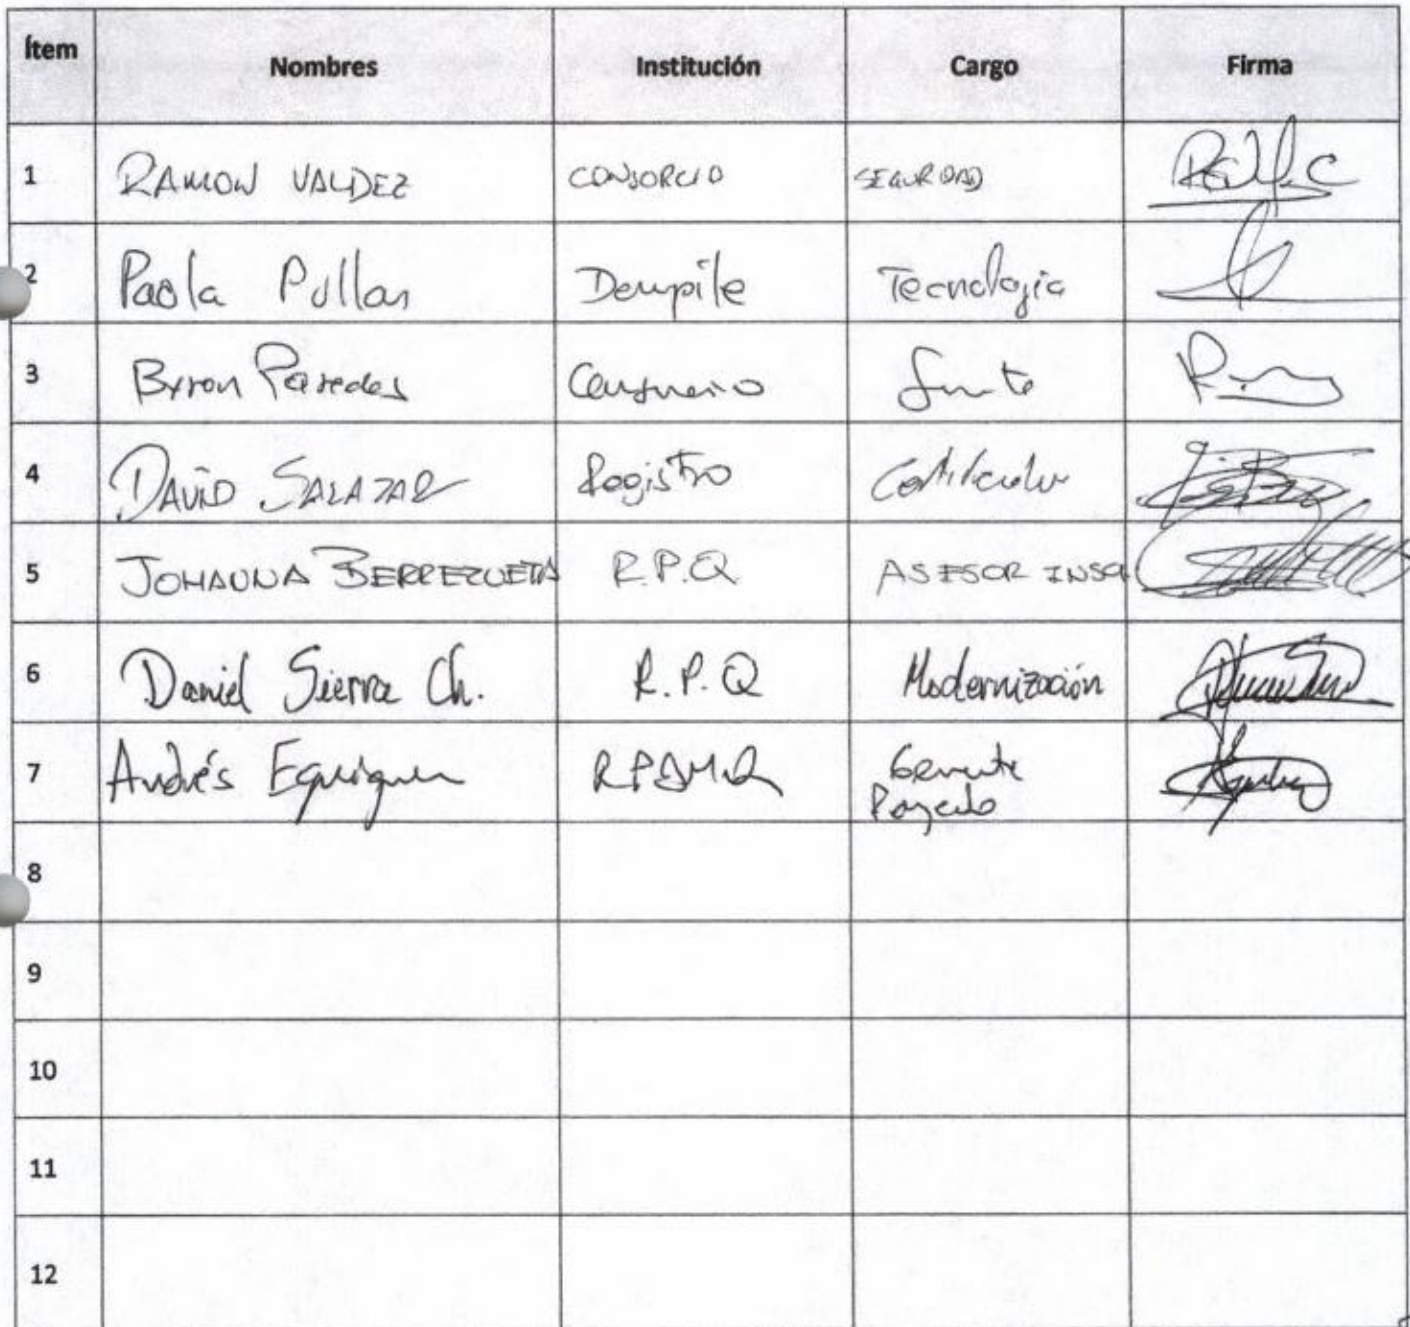 Ítem Nombres Institución Cargo Firma
1 RAMON VALDEZ CONSORCIO SEGURIDAD
2 Paola Pullas Tecnologia
3 Byron Paredes
4 DAVID SALAZAR Registro
5 JOHANNA BERREZUETA R.P.Q ASESOR
6 Daniel Sierra Ch. R.P.Q Modernización
7 Andrés Eguiguren RPDMQ Gerente
Proyecto
8
9
10
11
12